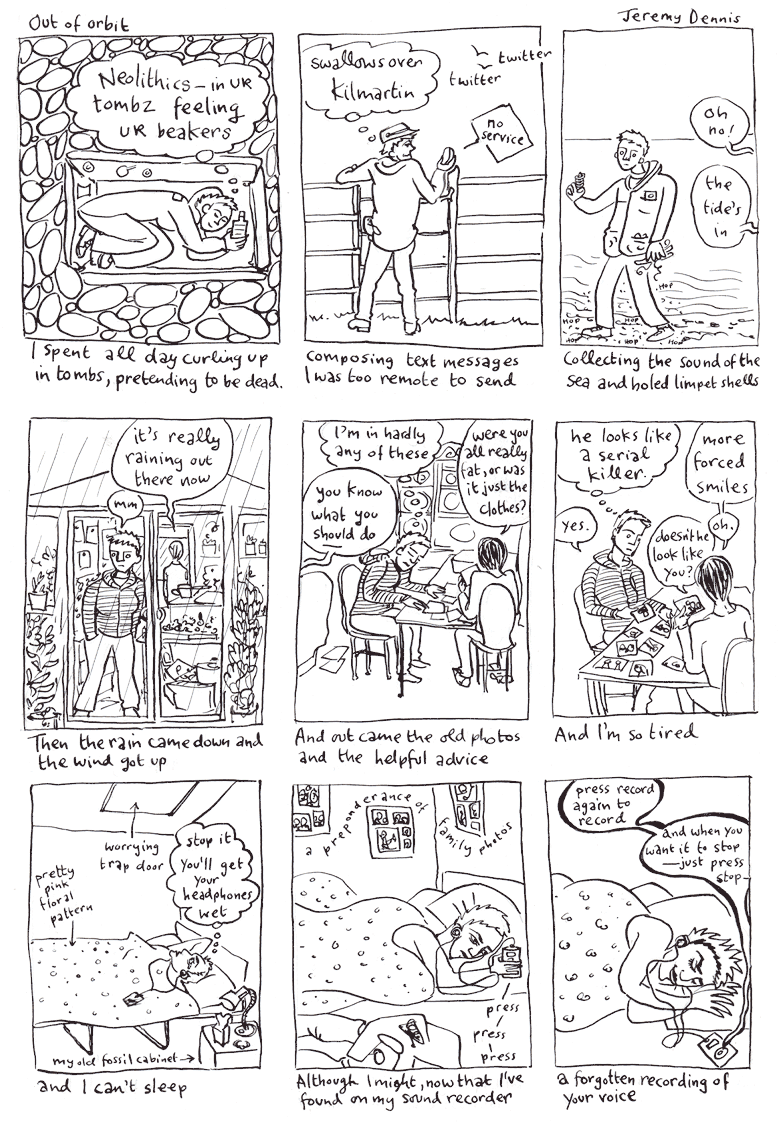 Out of orbit
Jeremy Dennis
Neolithics – in UR
tombz feeling
UR beakers
I spent all day curling up
in tombs, pretending to be dead.
swallows over
Kilmartin
twitter
twitter
no
service
composing text messages
I was too remote to send
oh
no!
the
tide's
in
HOP
HOP
HOP
HOP
HOP
HOP
Collecting the sound of the
sea and holed limpet shells
it's really
raining out
there now
mm
Then the rain came down and
the wind got up
I'm in hardly
any of these
were you
all really
fat, or was
it just the
clothes?
you know
what you
should do
And out came the old photos
and the helpful advice
he looks like
a serial
killer.
more
forced
smiles
yes.
doesn't he
look like
you?
oh.
And I'm so tired
worrying
trap door
pretty
pink
floral
pattern
stop it
You'll get
your
headphones
wet
my old fossil cabinet
and I can't sleep
a preponderance of
family photos
press
press
press
Although I might, now that I've
found on my sound recorder
press record
again to
record
and when you
want it to stop
— just press
stop —
a forgotten recording of
your voice